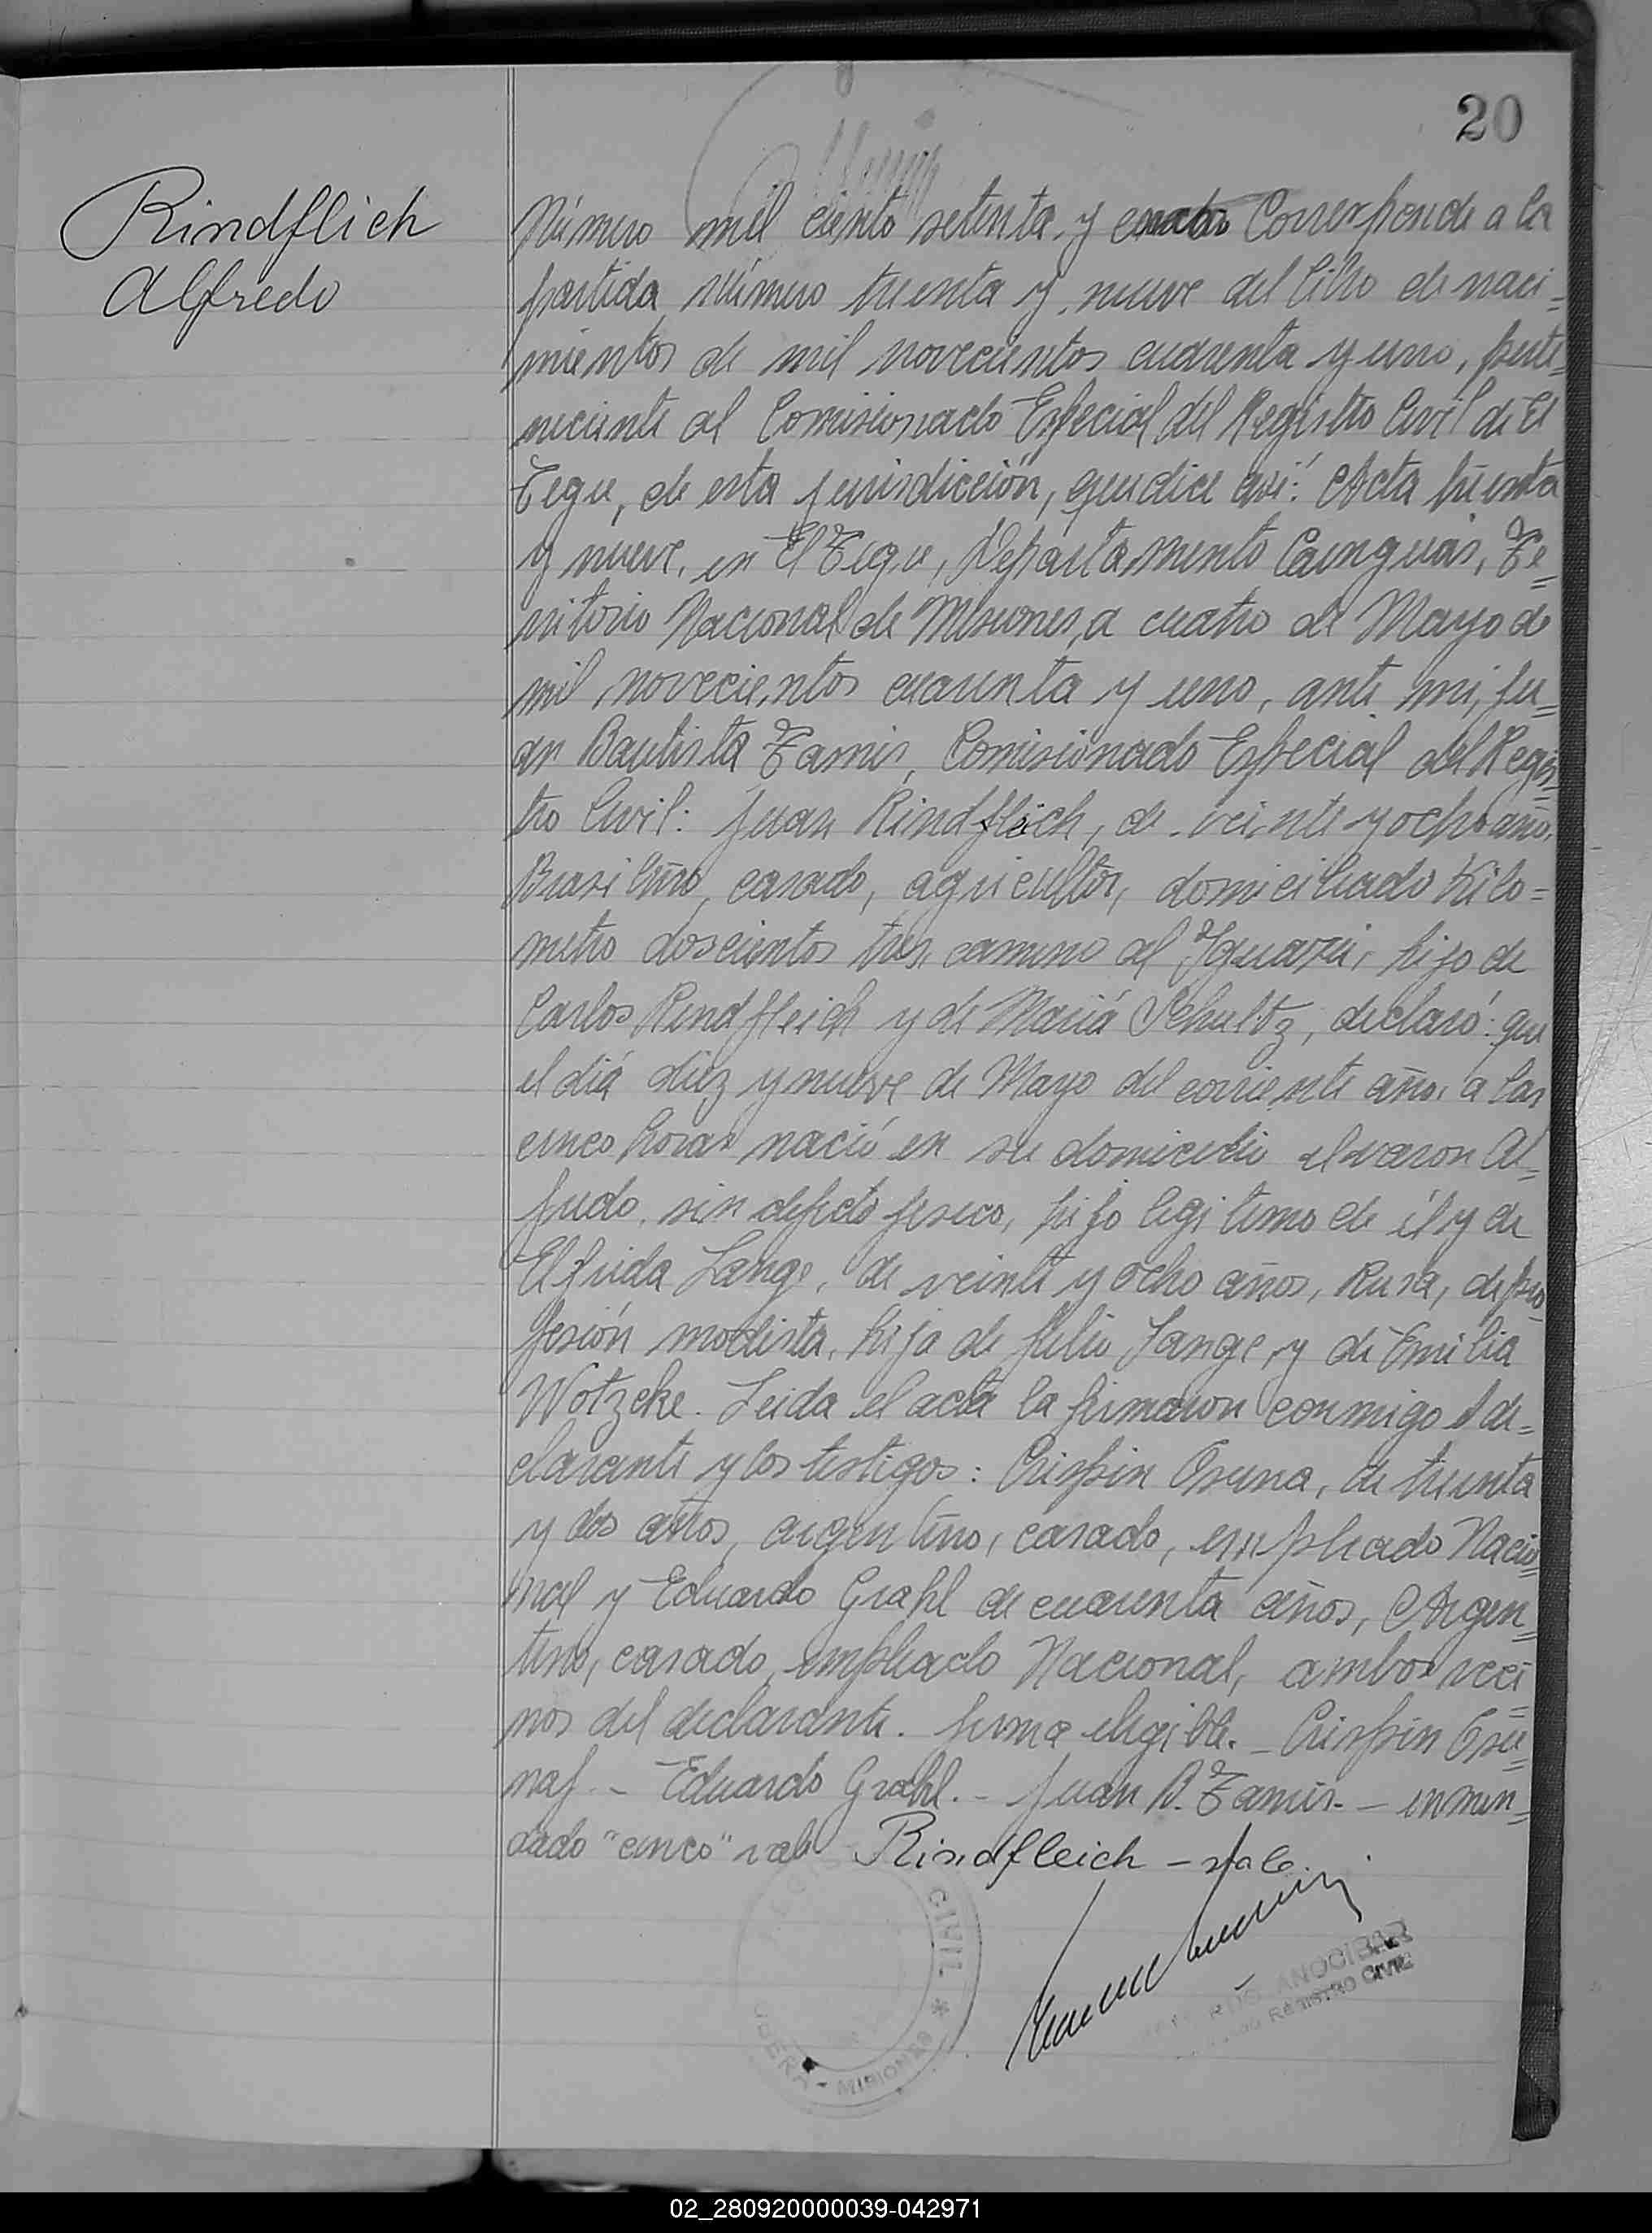 20
Rindflich
Alfredo
Número mil ciento setenta y Corresponde a la
partida número treinta y nueve del libro de naci=
mientos de mil novecientos cuarenta y uno, perte=
neciente al Comisionado Especial del Registro Civil de El
Tegu, de esta jurisdicción, que dice así: Acta treinta
y nueve. en El Tegu, Departamento Cainguás, Te=
rritorio Nacional de Misiones, a cuatro de Mayo de
mil novecientos cuarenta y uno, ante mi, Ju=
an Bautista Tamis, Comisionado Especial del Regis=
tro Civil: Juan Rindfleich, de veinte y ocho años,
Brasileño, casado, agricultor, domiciliado Kilo=
metro doscientos tres camino al Yguazú, hijo de
Carlos Rindfleich y de María Schultz, declaró: que
el día diez y nueve de Mayo del corriente año, a las
cinco horas nació en su domicilio el varon Al=
fredo, sin defecto fisico, hijo legitimo de él y de
Elfrida Lange, de veinte y ocho años, Rusa, de pro=
fesión modista, hija de Julio Lange, y de Emilia
Wotzcke. Leida el acta la firmaron conmigo el de=
clarante y los testigos: Crispin Osuna, de treinta
y dos años, argentino, casado, empleado Nacio=
nal y Eduardo Grahl de cuarenta años, Argen=
tino, casado, empleado Nacional, ambos veci=
nos del declarante. firma elegible. - Crispin Osu=
naf. - Eduardo Grahl. - Juan B. Tamis. - enmen=
dado "cinco" vale Rindfleich - vale.
CIVIL *
OBERA - MISIONES
ANOCIBAR
REGISTRO CIVIL
02_280920000039-042971